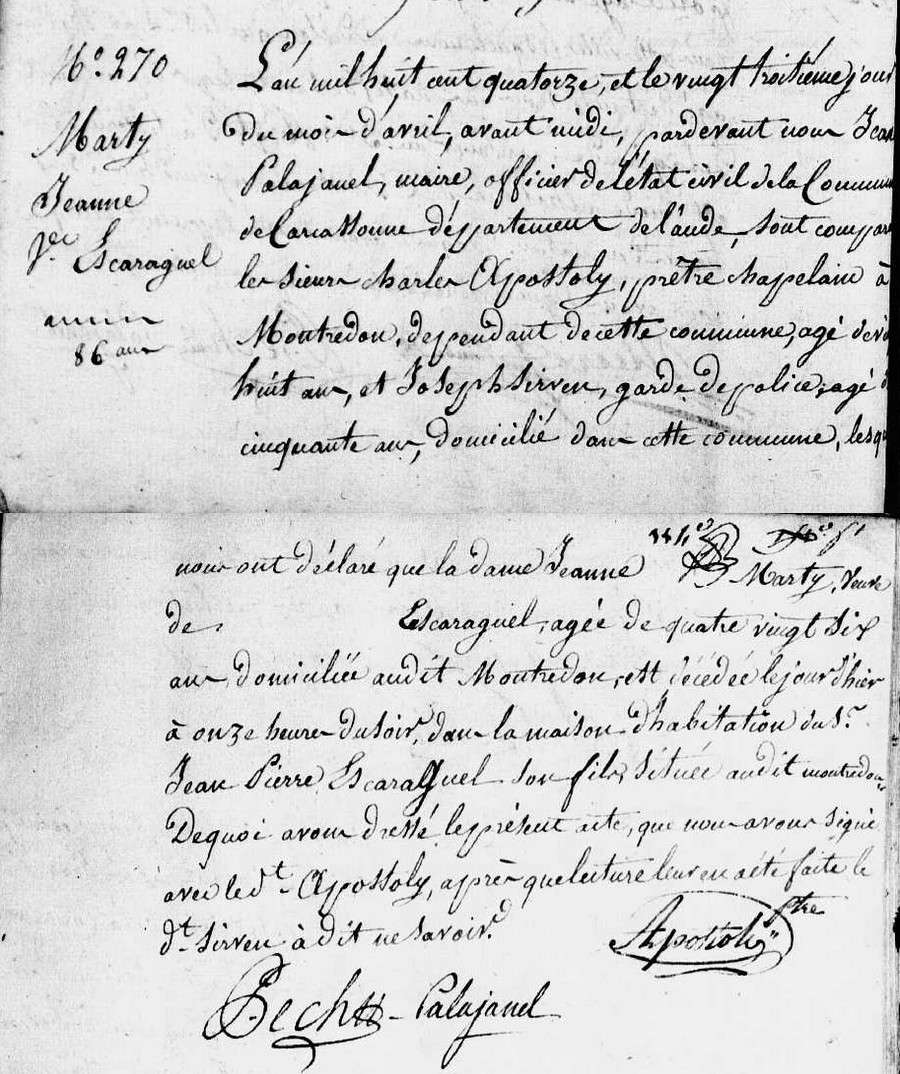 N.° 270
Marty
Jeanne
v.e Escaraguel
86 ans
L'an mil huit cent quatorze, et le vingt troisième jour
du mois d'avril, avant midi, pardevant nous Jean
Palajanel, maire, officier de l'état civil de la Commun
de Carcassonne département de l'aude, sont compar
les sieurs charles Apostoly, prêtre chapelain à
Montredon, dependant de cette commune, agé de
huit ans, et Joseph Sirven, garde de police, agé d
cinquante ans, domicilié dans cette commune, lesqu
nous ont déclaré que la dame Jeanne Marty, veuve
de Escaraguel, agée de quatre vingt six
ans, domiciliée audit Montredon, est décédée le jour d'hier
à onze heures du soir, dans la maison d'habitation du S.r
Jean Pierre Escaraguel son fils, située audit montredon
Dequoi avons dressé le présent acte, que nous avons signé
avec led.t Apostoly, après que lecture leur en a été faite le
d.t sirven à dit ne savoir.
Apostoli ptre
Pech - Palajanel